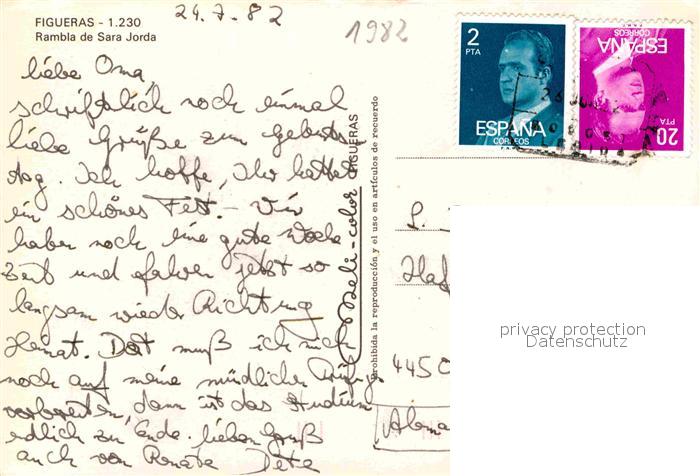 24.7.82
1982
FIGUERAS - 1.230
Rambla de Sara Jorda
liebe Oma,
schriftlich noch einmal
liebe Grüße zum Geburts-
tag. Ich hoffe, Ihr hattet
ein schönes Fest. - Wir
haben noch eine gute Woche
Zeit und fahren jetzt so
langsam wieder Richtung
Heimat. Dort muß ich mich
noch auf meine mündlichen
vorbereiten, dann ist das Studium
endlich zu Ende. lieben Gruß
auch von Renate
color FIGUERAS
Prohibida la reproducción y el uso en artículos de recuerdo
2
PTA
ESPAÑA
CORREOS
20
PTA
ESPAÑA
CORREOS
L.
Haf
4450
Alema
privacy protection
Datenschutz